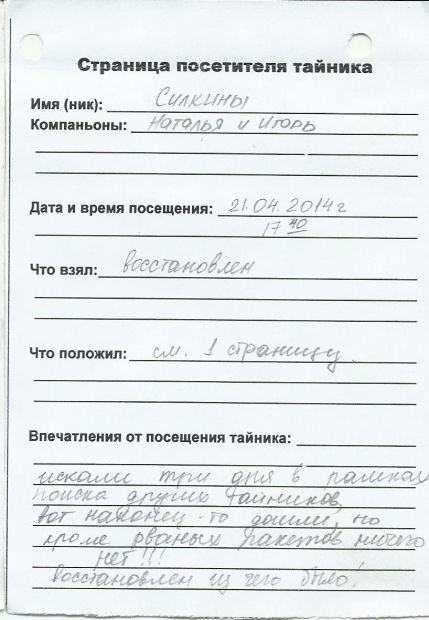 Страница посетителя тайника
Имя (ник): Силкины
Компаньоны: Наталья и Игорь
Дата и время посещения: 21.04.2014 г
17 40
Что взял: восстановлен
Что положил: см. 1 страницу.
Впечатления от посещения тайника:
искали три дня в рамках
поиска других тайников,
вот наконец-то дошли, но
кроме рваных пакетов ничего
нет!!!
восстановлен из чего было!